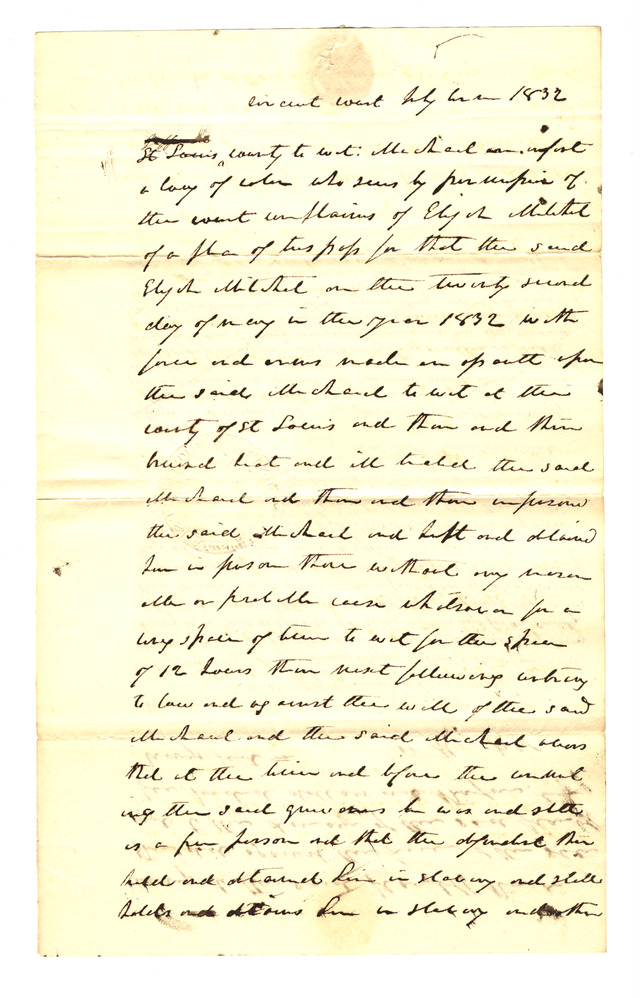 circuit court July term 1832
St Louis county to wit: Michael an infant
a boy of color who sues by permission of
the court complains of Elijah Mitchel
of a plea of trespass for that the said
Elijah Mitchel on the twenty second
day of may in the year 1832 with
force and arms made an assault upon
the said Michael to wit at the
county of St Louis and then and there
bruised beat and ill treated the said
Michael and then and there imprisoned
the said Michael and kept and detained
him in prison there without any reason
able or probable cause whatsoever for a
long space of time to wit for the space
of 12 hours then next following contrary
to law and against the will of the said
Michael and the said Michael avers
that at the time and before the commit
ing the said grievances he was and still
is a free person and that the defendant then
held and detained him in slavery and still
holds and detains him in slavery and other